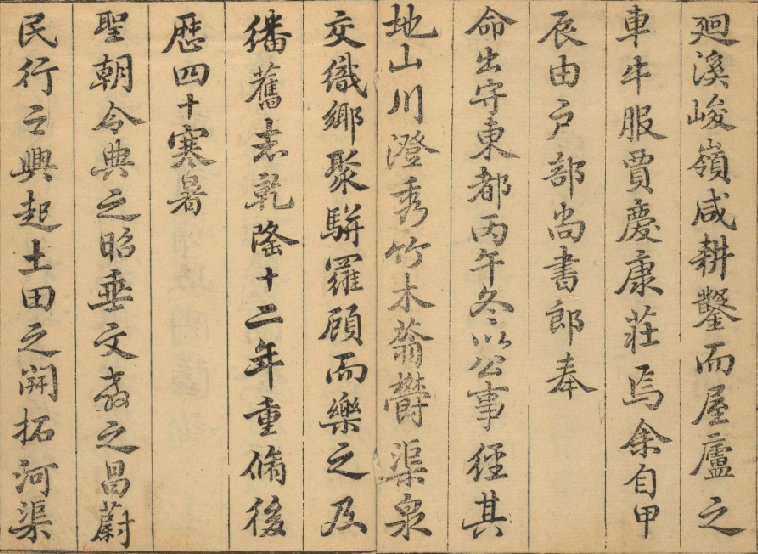 廻溪峻嶺咸耕鑿而屋廬之
車牛服賈慶康莊焉余自甲
辰由戶部尚書郎奉
命出守東都丙午冬以公事經其
地山川澄秀竹木蓊欝渠泉
交織鄉聚駢羅顧而樂之及
繙舊志乾隆十二年重脩後
歴四十寒暑
聖朝令典之昭垂文教之昌蔚
民行之興起土田之開拓河渠